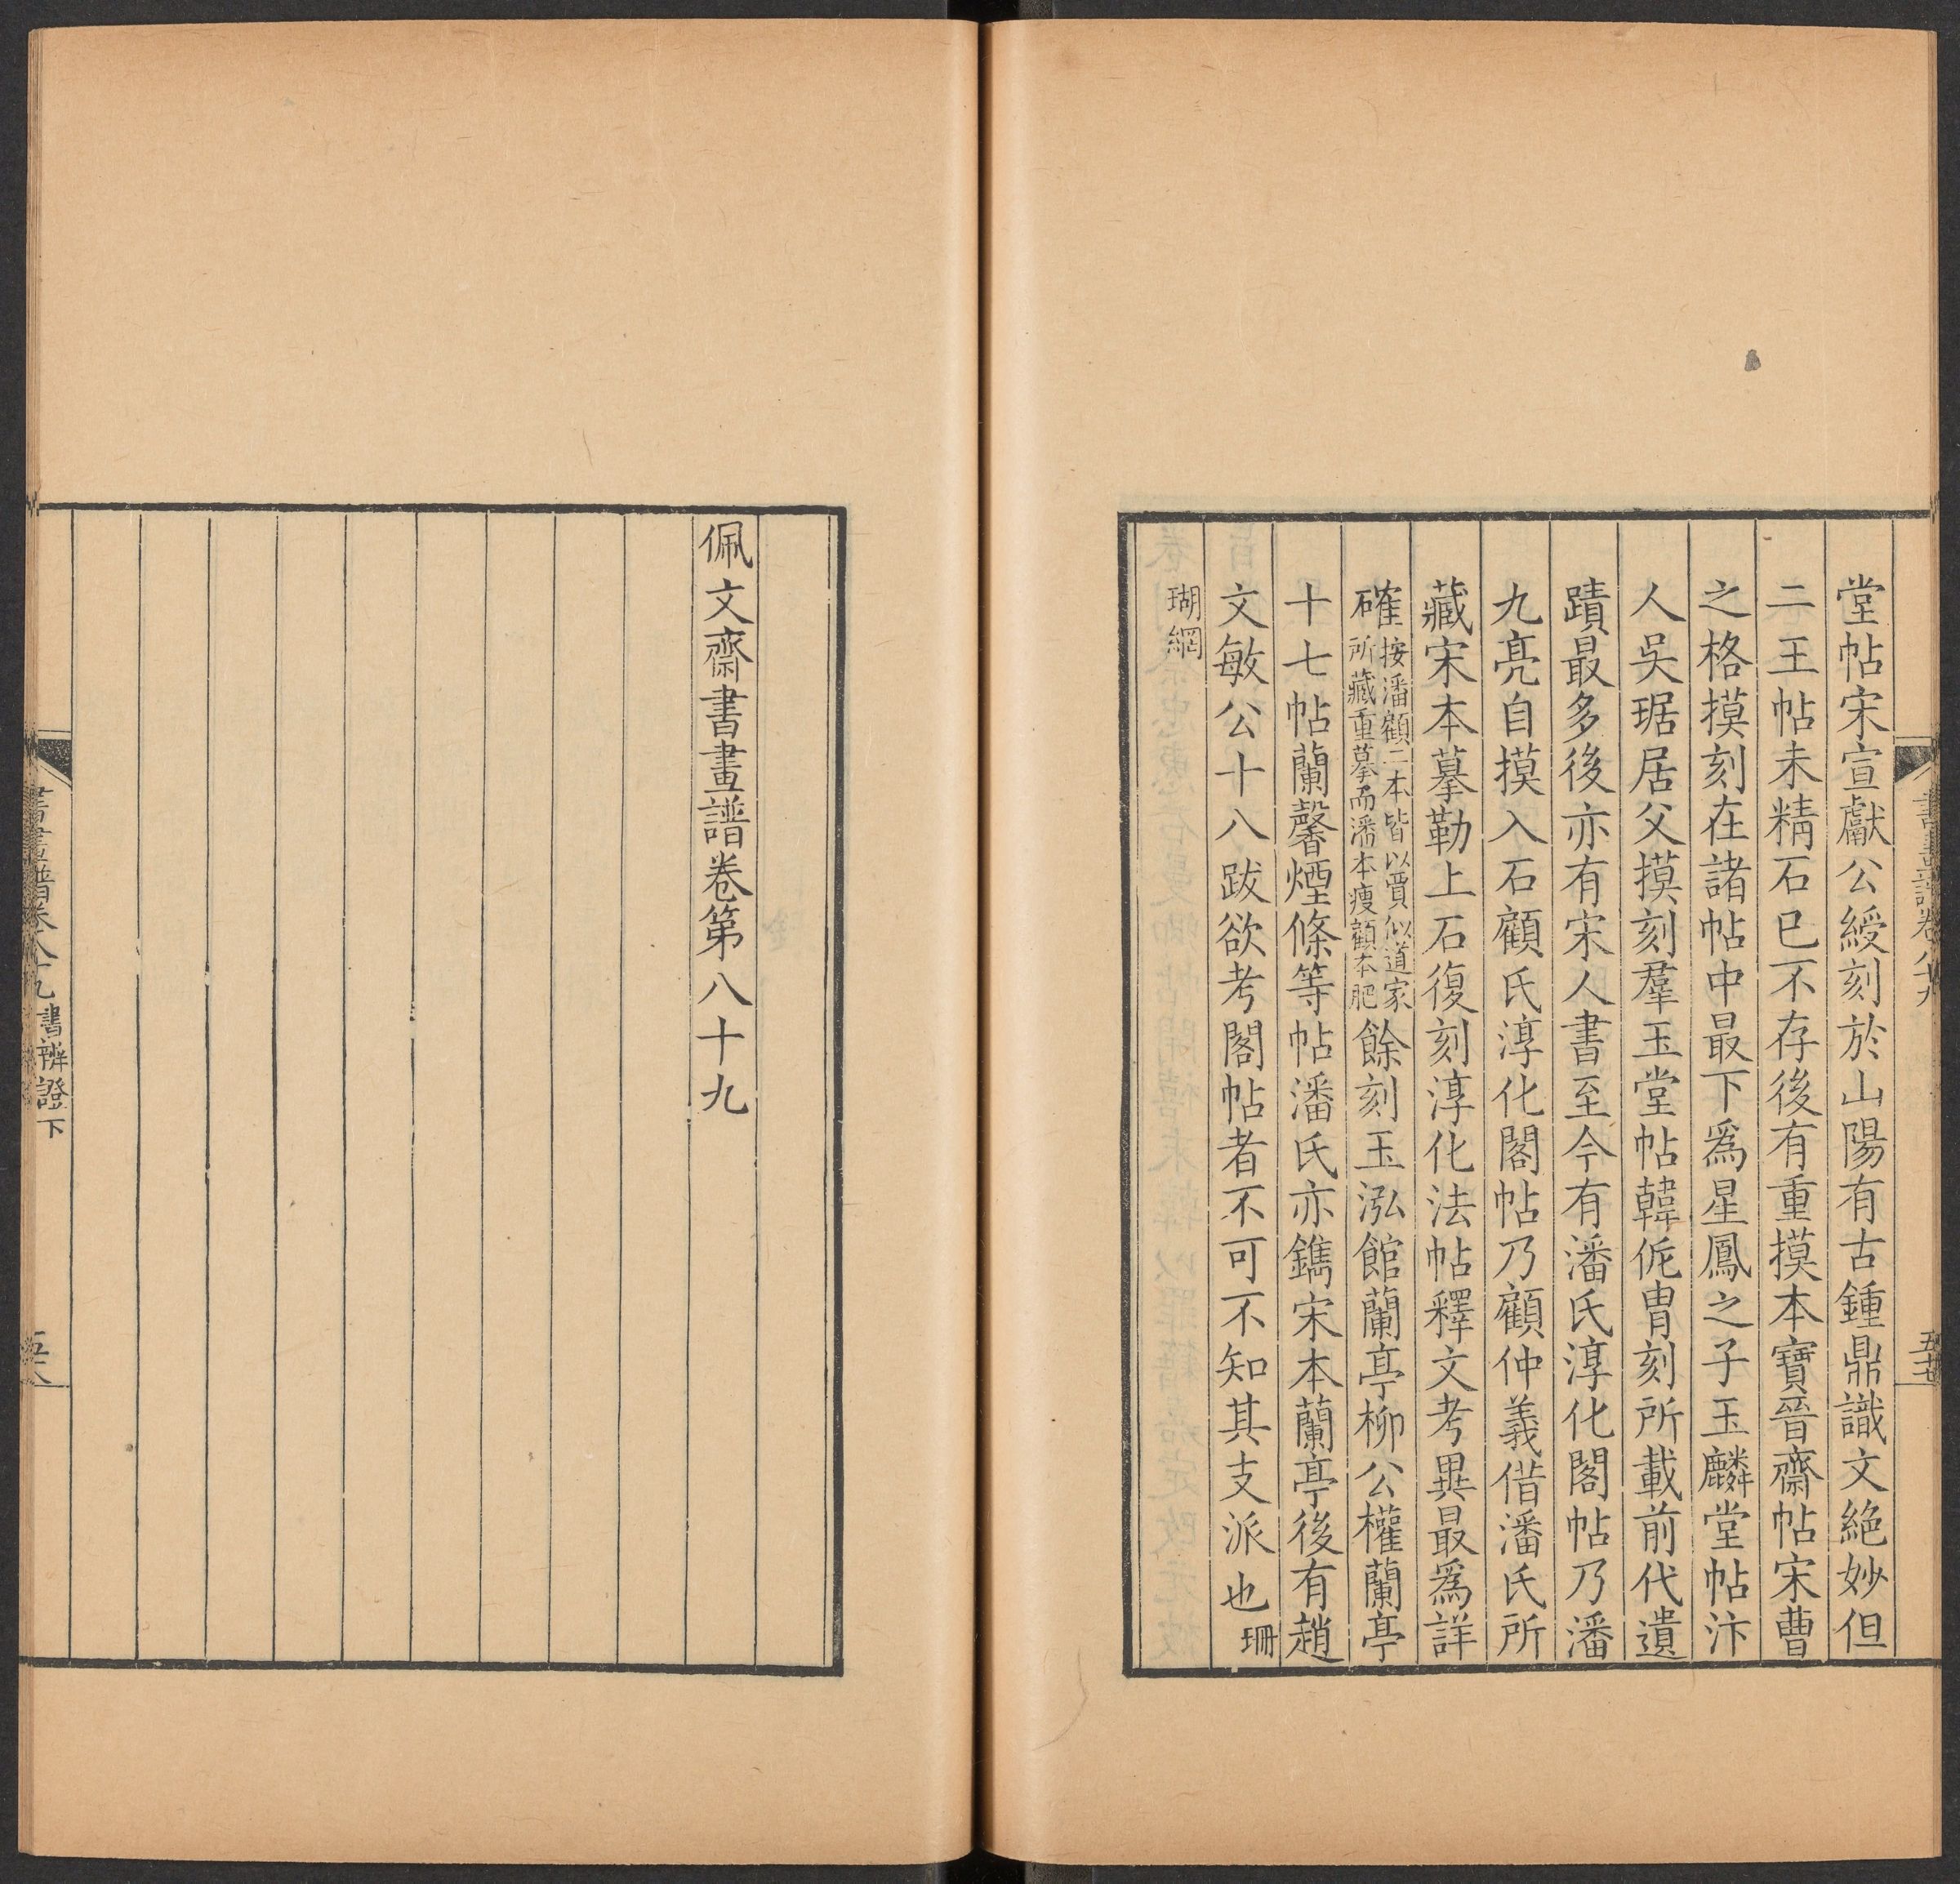 堂帖宋宣獻公綬刻於山陽有古鍾鼎識文絶妙但
二王帖未精石已不存後有重摸本寶晉齋帖宋曹
之格摸刻在諸帖中最下爲星鳳之子玉麟堂帖汴
人吳琚居父摸刻羣玉堂帖韓侂胄刻所載前代遺
蹟最多後亦有宋人書至今有潘氏淳化閣帖乃潘
九亮自摸入石顧氏淳化閣帖乃顧仲義借潘氏所
藏宋本摹勒上石復刻淳化法帖釋文考異最爲詳
確按潘顧二本皆以賈似道家所藏重摹而潘本瘦顧本肥餘刻玉泓館蘭亭柳公權蘭亭
十七帖蘭馨煙條等帖潘氏亦鐫宋本蘭亭後有趙
文敏公十八跋欲考閣帖者不可不知其支派也珊
瑚網
書畫譜卷八十九
五十七
佩文齋書畫譜卷第八十九
書畫譜卷八十九 書辨證下